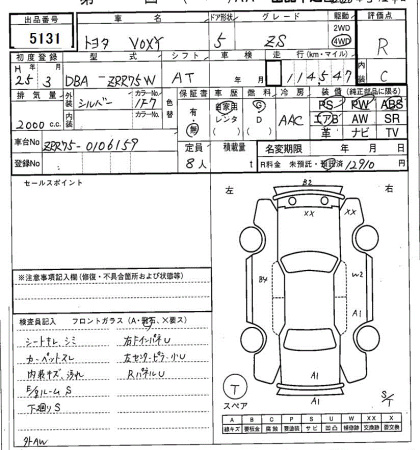 出品番号 車名 ドア形状 グレード 駆動 評価点
5131 トヨタ VOXY 5 ZS 2WD 4WD R
初度登録 型式 シフト 車検 走行(km・マイル) 内装
H 25年 3月 DBA-ZRR75W AT 年 月 114,547 C
排気量 外装 カラーNo 色替 保証書 車歴 燃料 冷房 装備(純正部品に限る)
2000 c.c. シルバー 1F7 有・無 自家用 レンタ G D AAC PS PW ABS
内装 カラーNo エアB AW SR
革 ナビ TV
車台No ZRR75-0106159 定員 積載量 名変期限 年 月 日
登録No 8人 t R料金 未預託・預託済 12910 円
セールスポイント
左 右
B2
XX XX
B4 W2
A1
A1
A1
S/T
T
スペア
※注意事項記入欄(修復・不具合箇所および状態等)
検査員記入 フロントガラス(A・飛石、×要ス)
シートキレ、シミ
カーペットスレ
内装キズ、汚れ
E/gルームS
下廻りS
外AW
RパネルU
A B C P S U W X XX
線キズ 要板金 腐蝕 要塗装 サビ 凹凸 補修跡 要交換